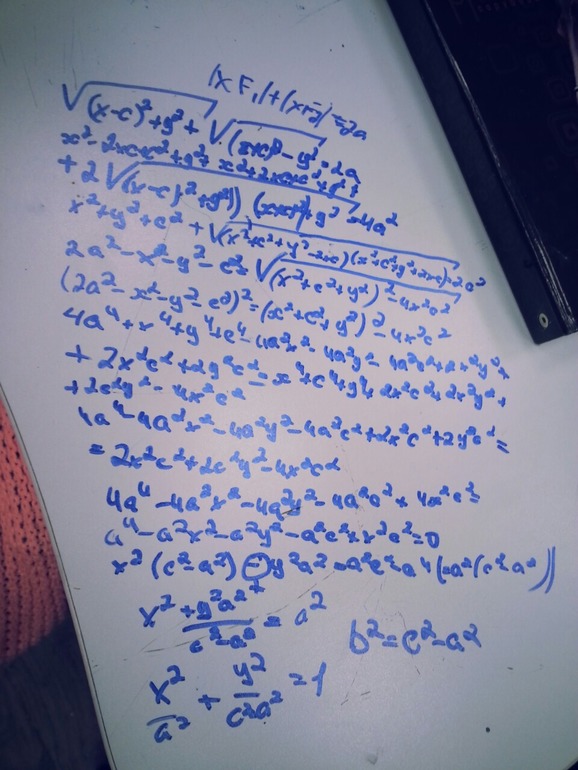 |x F₁| + (x+y) = 2a
√(x-c)² + y² + √(x+c)² - y² = 2a
x² - 2xc + c² + y² + x² + 2xc + c² + y² +
+ 2√(x-c)² + y²)) (x+c)² + y² = 4a²
x² + y² + c² + √(x² + c² + y² - 2xc)(x² + c² + y² + 2xc) = 2a²
2a² - x² - y² - c² = √(x² + c² + y²)² - 4x²c²
(2a² - x² - y² - c²)² = (x² + c² + y²)² - 4x²c²
4a⁴ + x⁴ + y⁴ + c⁴ - 4a²x² - 4a²y² - 4a²c² + 2x²y² +
+ 2x²c² + 2y²c² = x⁴ + c⁴ + y⁴ + 2x²c² + 2x²y² +
+ 2c²y² - 4x²c²
4a⁴ - 4a²x² - 4a²y² - 4a²c² + 2x²c² + 2y²c² =
= 2x²c² + 2c²y² - 4x²c²
4a⁴ - 4a²x² - 4a²y² - 4a²c² + 4x²c² =
a⁴ - a²x² - a²y² - a²c² + x²c² = 0
x² (c² - a²) - y²a² = a²c² - a⁴ (= a²(c² - a²))
x² + y²a² / c² - a² = a²
b² = c² - a²
x² / a² + y² / c² a² = 1